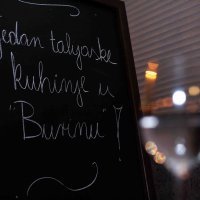 jedan talijanske
kuhinje u
"Buvinu"!